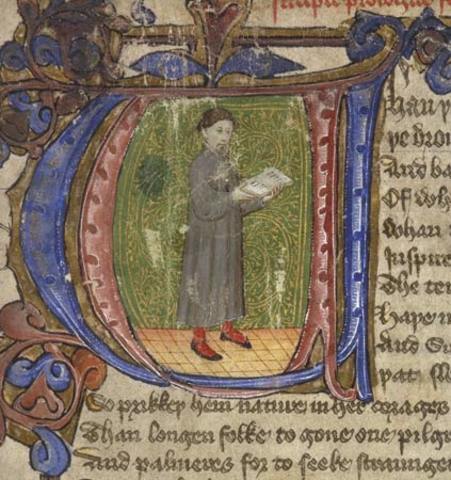 incipit prologus
han
þe drou
And ba
Of whi
Whan
Inspire
The te
haþe
And
þat
So prikkeþ hem nature in her corages
Than longen folke to gone one pilgr
And palmeres for to seeke straunge